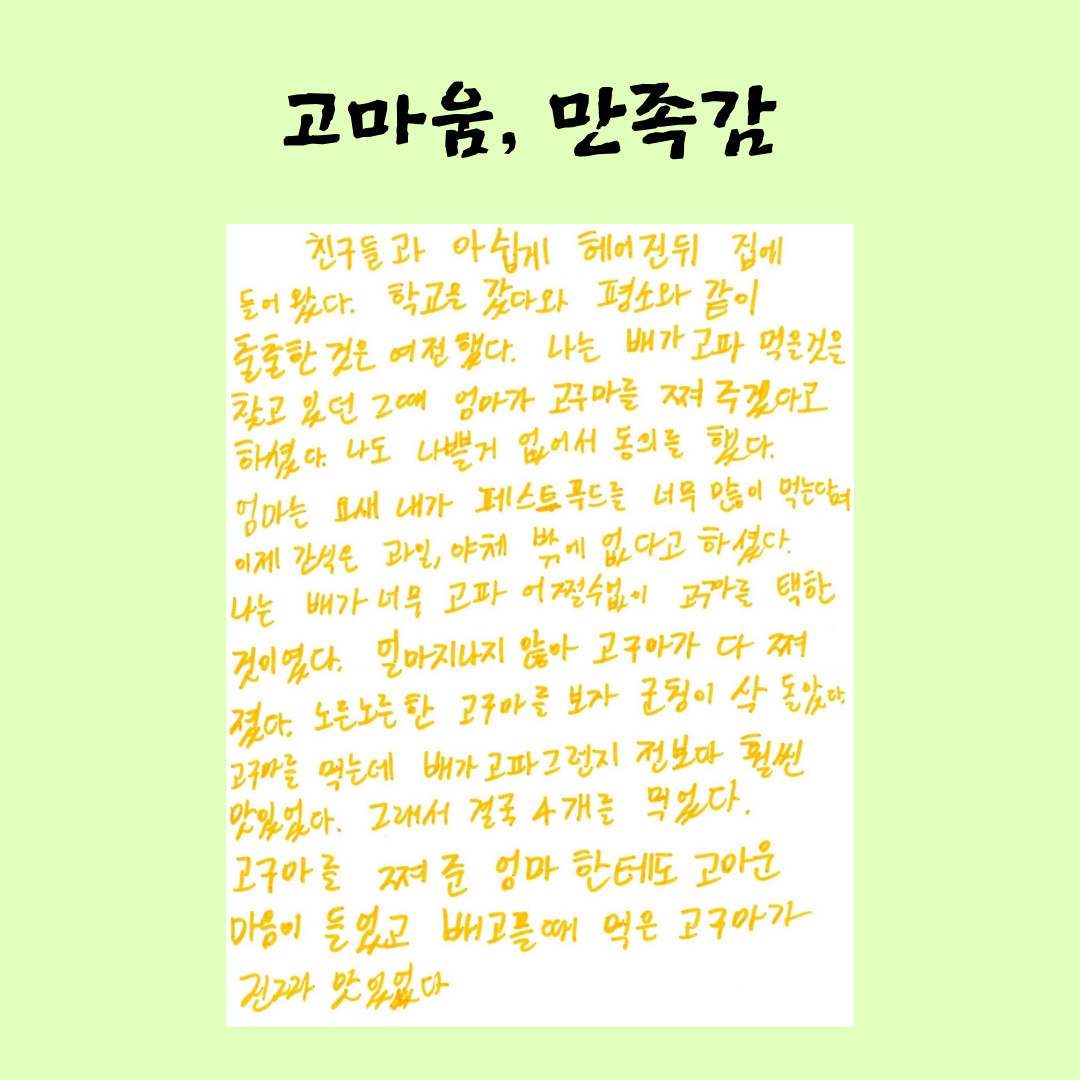 고마움, 만족감
친구들과 아쉽게 헤어진뒤 집에
들어왔다. 학교을 갔다와 평소와 같이
출출한 것은 여전했다. 나는 배가 고파 먹을것을
찾고 있던 그때 엄마가 고구마를 쪄 주겠다고
하셨다. 나도 나쁠거 없어서 동의를 했다.
엄마는 요새 내가 페스트푸드를 너무 많이 먹는다며
이제 간식은 과일, 야채 밖에 없다고 하셨다.
나는 배가 너무 고파 어쩔수없이 고구마를 택한
것이였다. 얼마지나지 않아 고구마가 다 쪄
졌다. 노른노른한 고구마를 보자 군침이 싹 돌았다.
고구마를 먹는데 배가 고파그런지 전보다 훨씬
맛있었다. 그래서 결국 4개를 먹었다.
고구마를 쪄 준 엄마 한테도 고마운
마음이 들었고 배고플때 먹은 고구마가
진짜 맛있었다